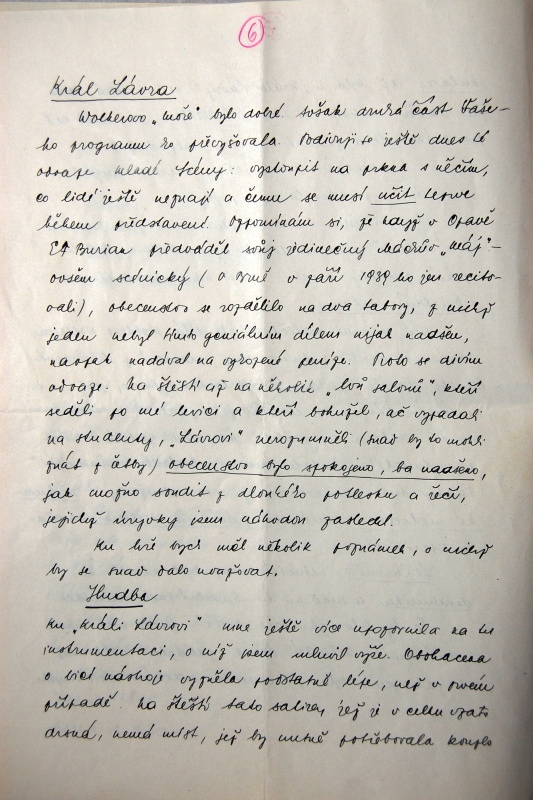 6
Král Lávra
Wolkerovo „moře" bylo dobré však druhá část Vaše-
ho programu ho převyšovala. Podivuji se ještě dnes té
odvaze mladé scény: vystoupit na prkna s něčím,
co lidé ještě neznají a čemu se musí učit teprve
během představení. Vzpomínám si, že když v Opavě
EF Burian předváděl svůj jedinečný Máchův „Máj"-
ovšem scénický (v Brně v září 1939 ho jen recito-
vali), obecenstvo se rozdělilo na dva tabory, z nichž
jeden nebyl tímto geniálním dílem nijak nadšen,
naopak nadával na vyhozené peníze. Proto se divím
odvaze. Na štěstí až na několik „lvů salonů", kteří
seděli po mé levici a kteří bohužel, ač vypadali
na studenty, „Lávrovi" nerozuměli (snad by to mohli
znát z četby) obecenstvo bylo spokojeno, ba nadšeno,
jak možno soudit z dlouhého potlesku a řečí,
jejichž úryvky jsem náhodou zaslechl.
Ku hře bych měl několik poznámek, o nichž
by se snad dalo uvažovat.
Hudba
Ku „Králi Lávrovi" mne ještě více upozornila na tu
instrumentaci, o níž jsem mluvil výše. Obohacena
o bicí nástroje vyzněla podstatně lépe, než v prvém
případě. Na štěstí tato satira, jež je v celku vzato
drsná, nemá míst, jež by nutně potřebovala